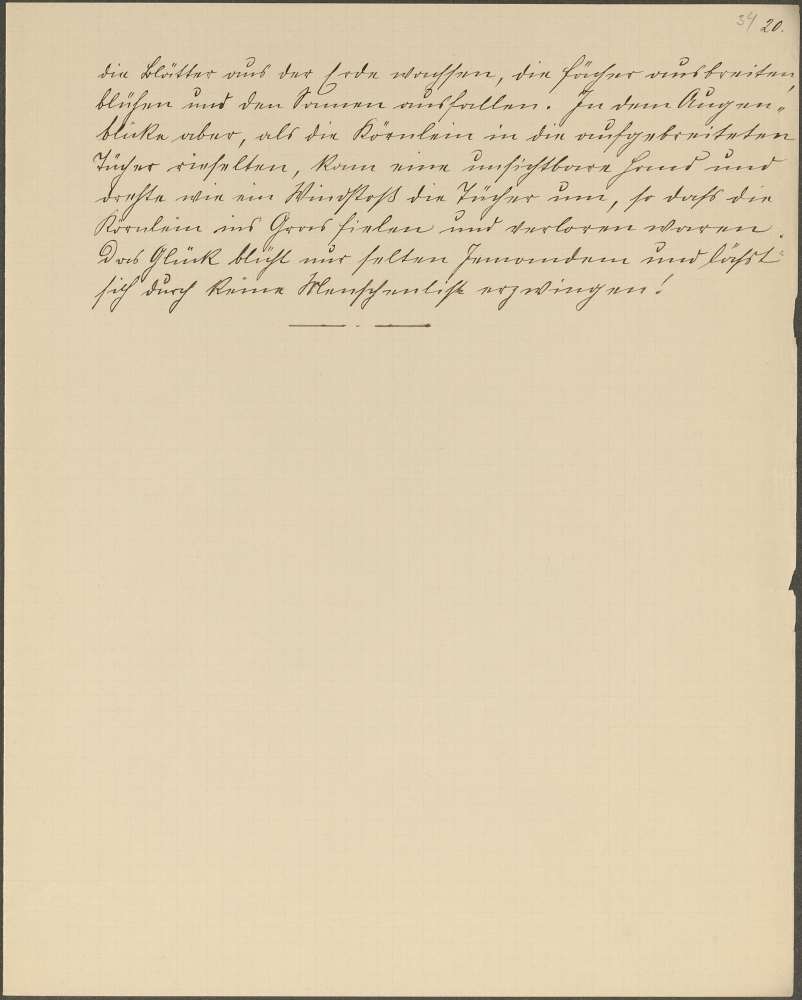 34 20.
die Blätter aus der Erde wachsen, die Fächer ausbreiten,
blühen und den Samen ausfallen. In dem Augen-
blicke aber, als die Körnlein in die aufgebreiteten
Tücher rieselten, kam eine unsichtbare Hand und
drehte wie ein Windstoß die Tücher um, so dass die
Körnlein ins Gras fielen und verloren waren.
Das Glück blüht nur selten Jemandem und lässt
sich durch keine Menschenlist erzwingen!